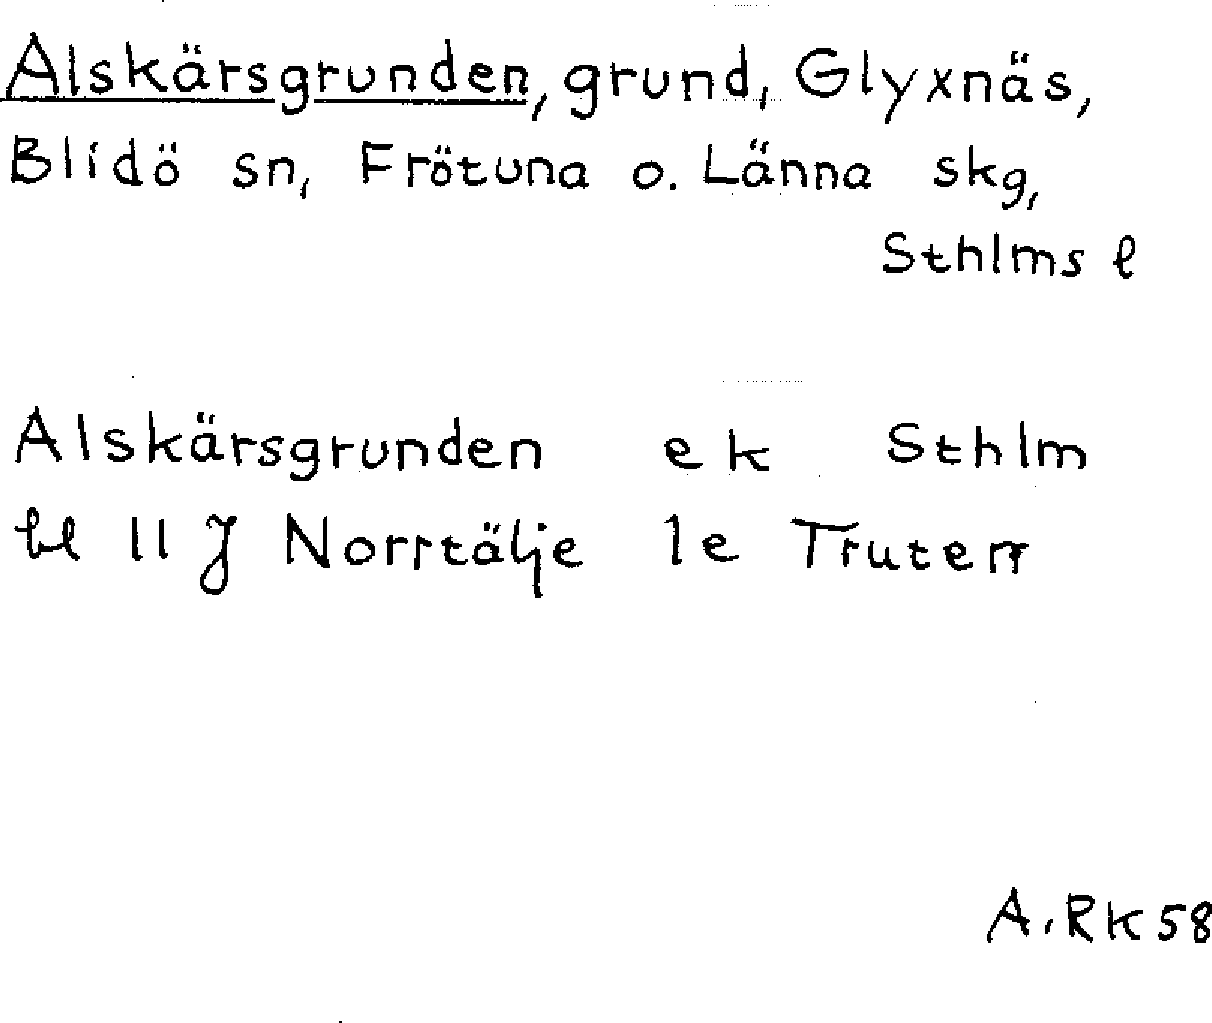 Alskärsgrunden, grund, Glyxnäs,
Blidö sn, Frötuna o. Länna skg,
Sthlms l
Alskärsgrunden ek Sthlm
bl 11 J Norrtälje 1e Truterr
A. RK 58